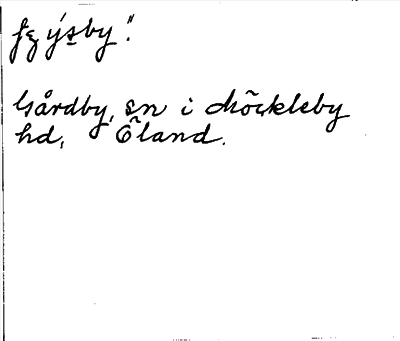 Gårdby, sn i Möckleby
hd, Öland.